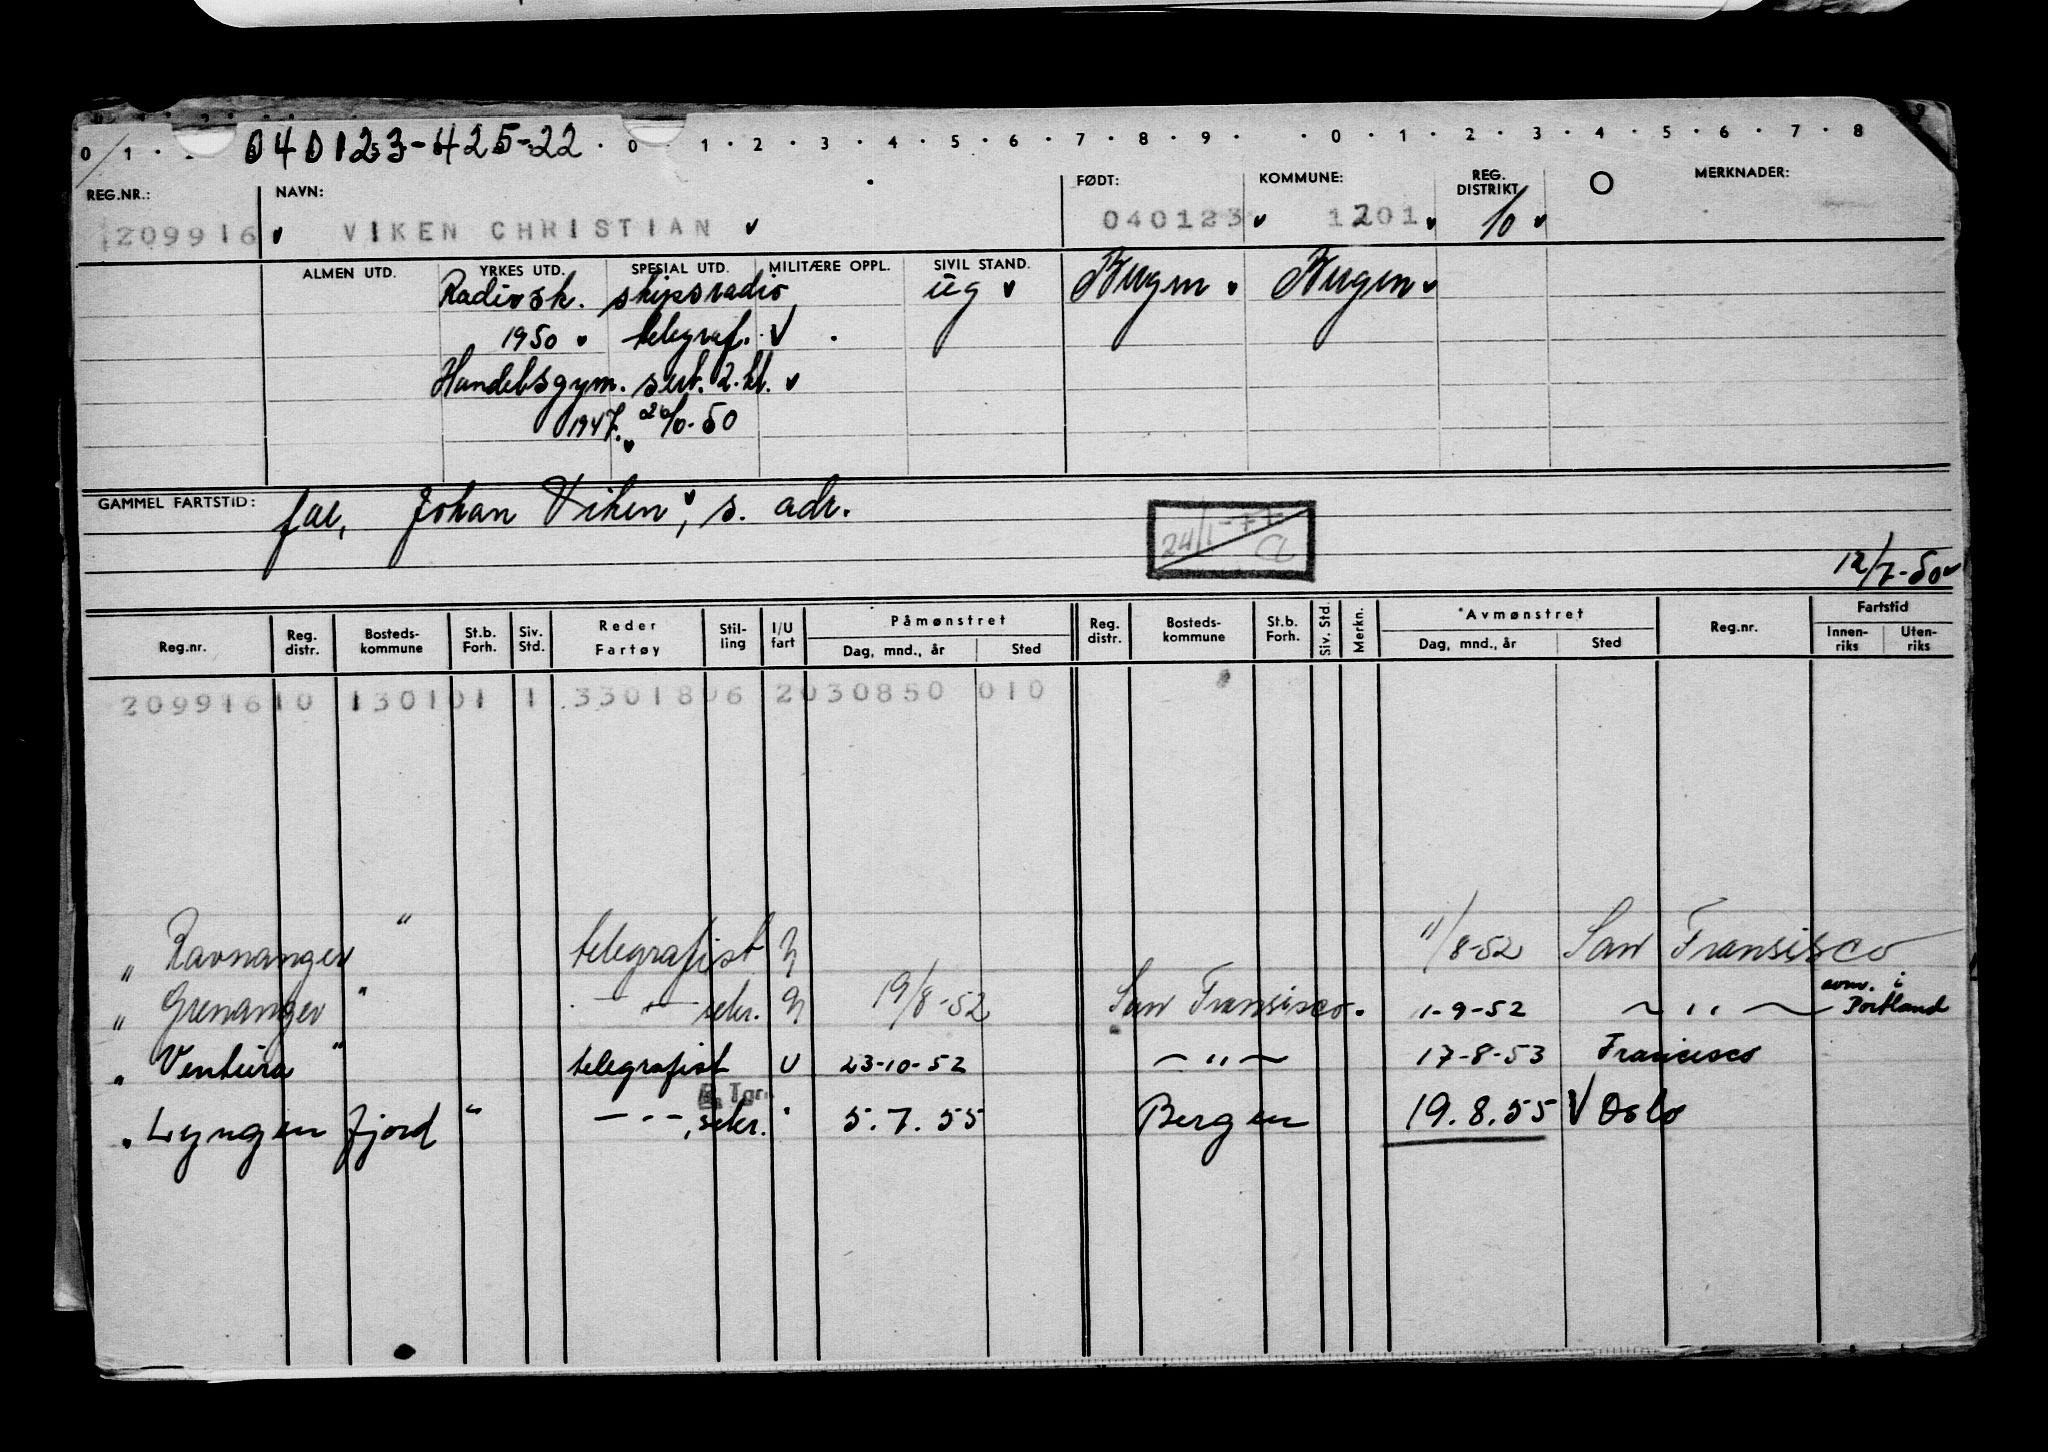 040123-425-22
REG.NR.: NAVN: FØDT: KOMMUNE: REG. DISTRIKT MERKNADER:
209916 VIKEN CHRISTIAN 040123 1201 10
ALMEN UTD. YRKES UTD. SPESIAL UTD. MILITÆRE OPPL. SIVIL STAND.
Radiosk. skipsradio ug Bergen Bergen
1950 telegraf.
Handelsgym. sert. 2. kl.
1947. 26/10-50
GAMMEL FARTSTID: far, Johan Viken, s. adr.
24/1-77
12/7-50
Reg.nr. Reg. distr. Bosteds-kommune St.b. Forh. Siv. Std. Reder Fartøy Stil-ling I/U fart Påmønstret Dag, mnd., år Sted Reg. distr. Bosteds-kommune St.b. Forh. Siv. Std. Merkn. Avmønstret Dag, mnd., år Sted Reg.nr. Fartstid Innen-riks Uten-riks
209916 10 1301 01 1 33018 06 2 030850 010
" Ravnanger " telegrafist U 11/8-52 San Fransisco
" Grenanger " — " — sekr. U 19/8-52 San Fransisco. 1-9-52 ~ " ~ avm. i Portland
" Ventura " telegrafist U 23-10-52 — " — 17-8-53 Francisco
R. Tgr.
" Lyngenfjord " — " —, sekr. " 5.7.55 Bergen 19.8.55 V Oslo